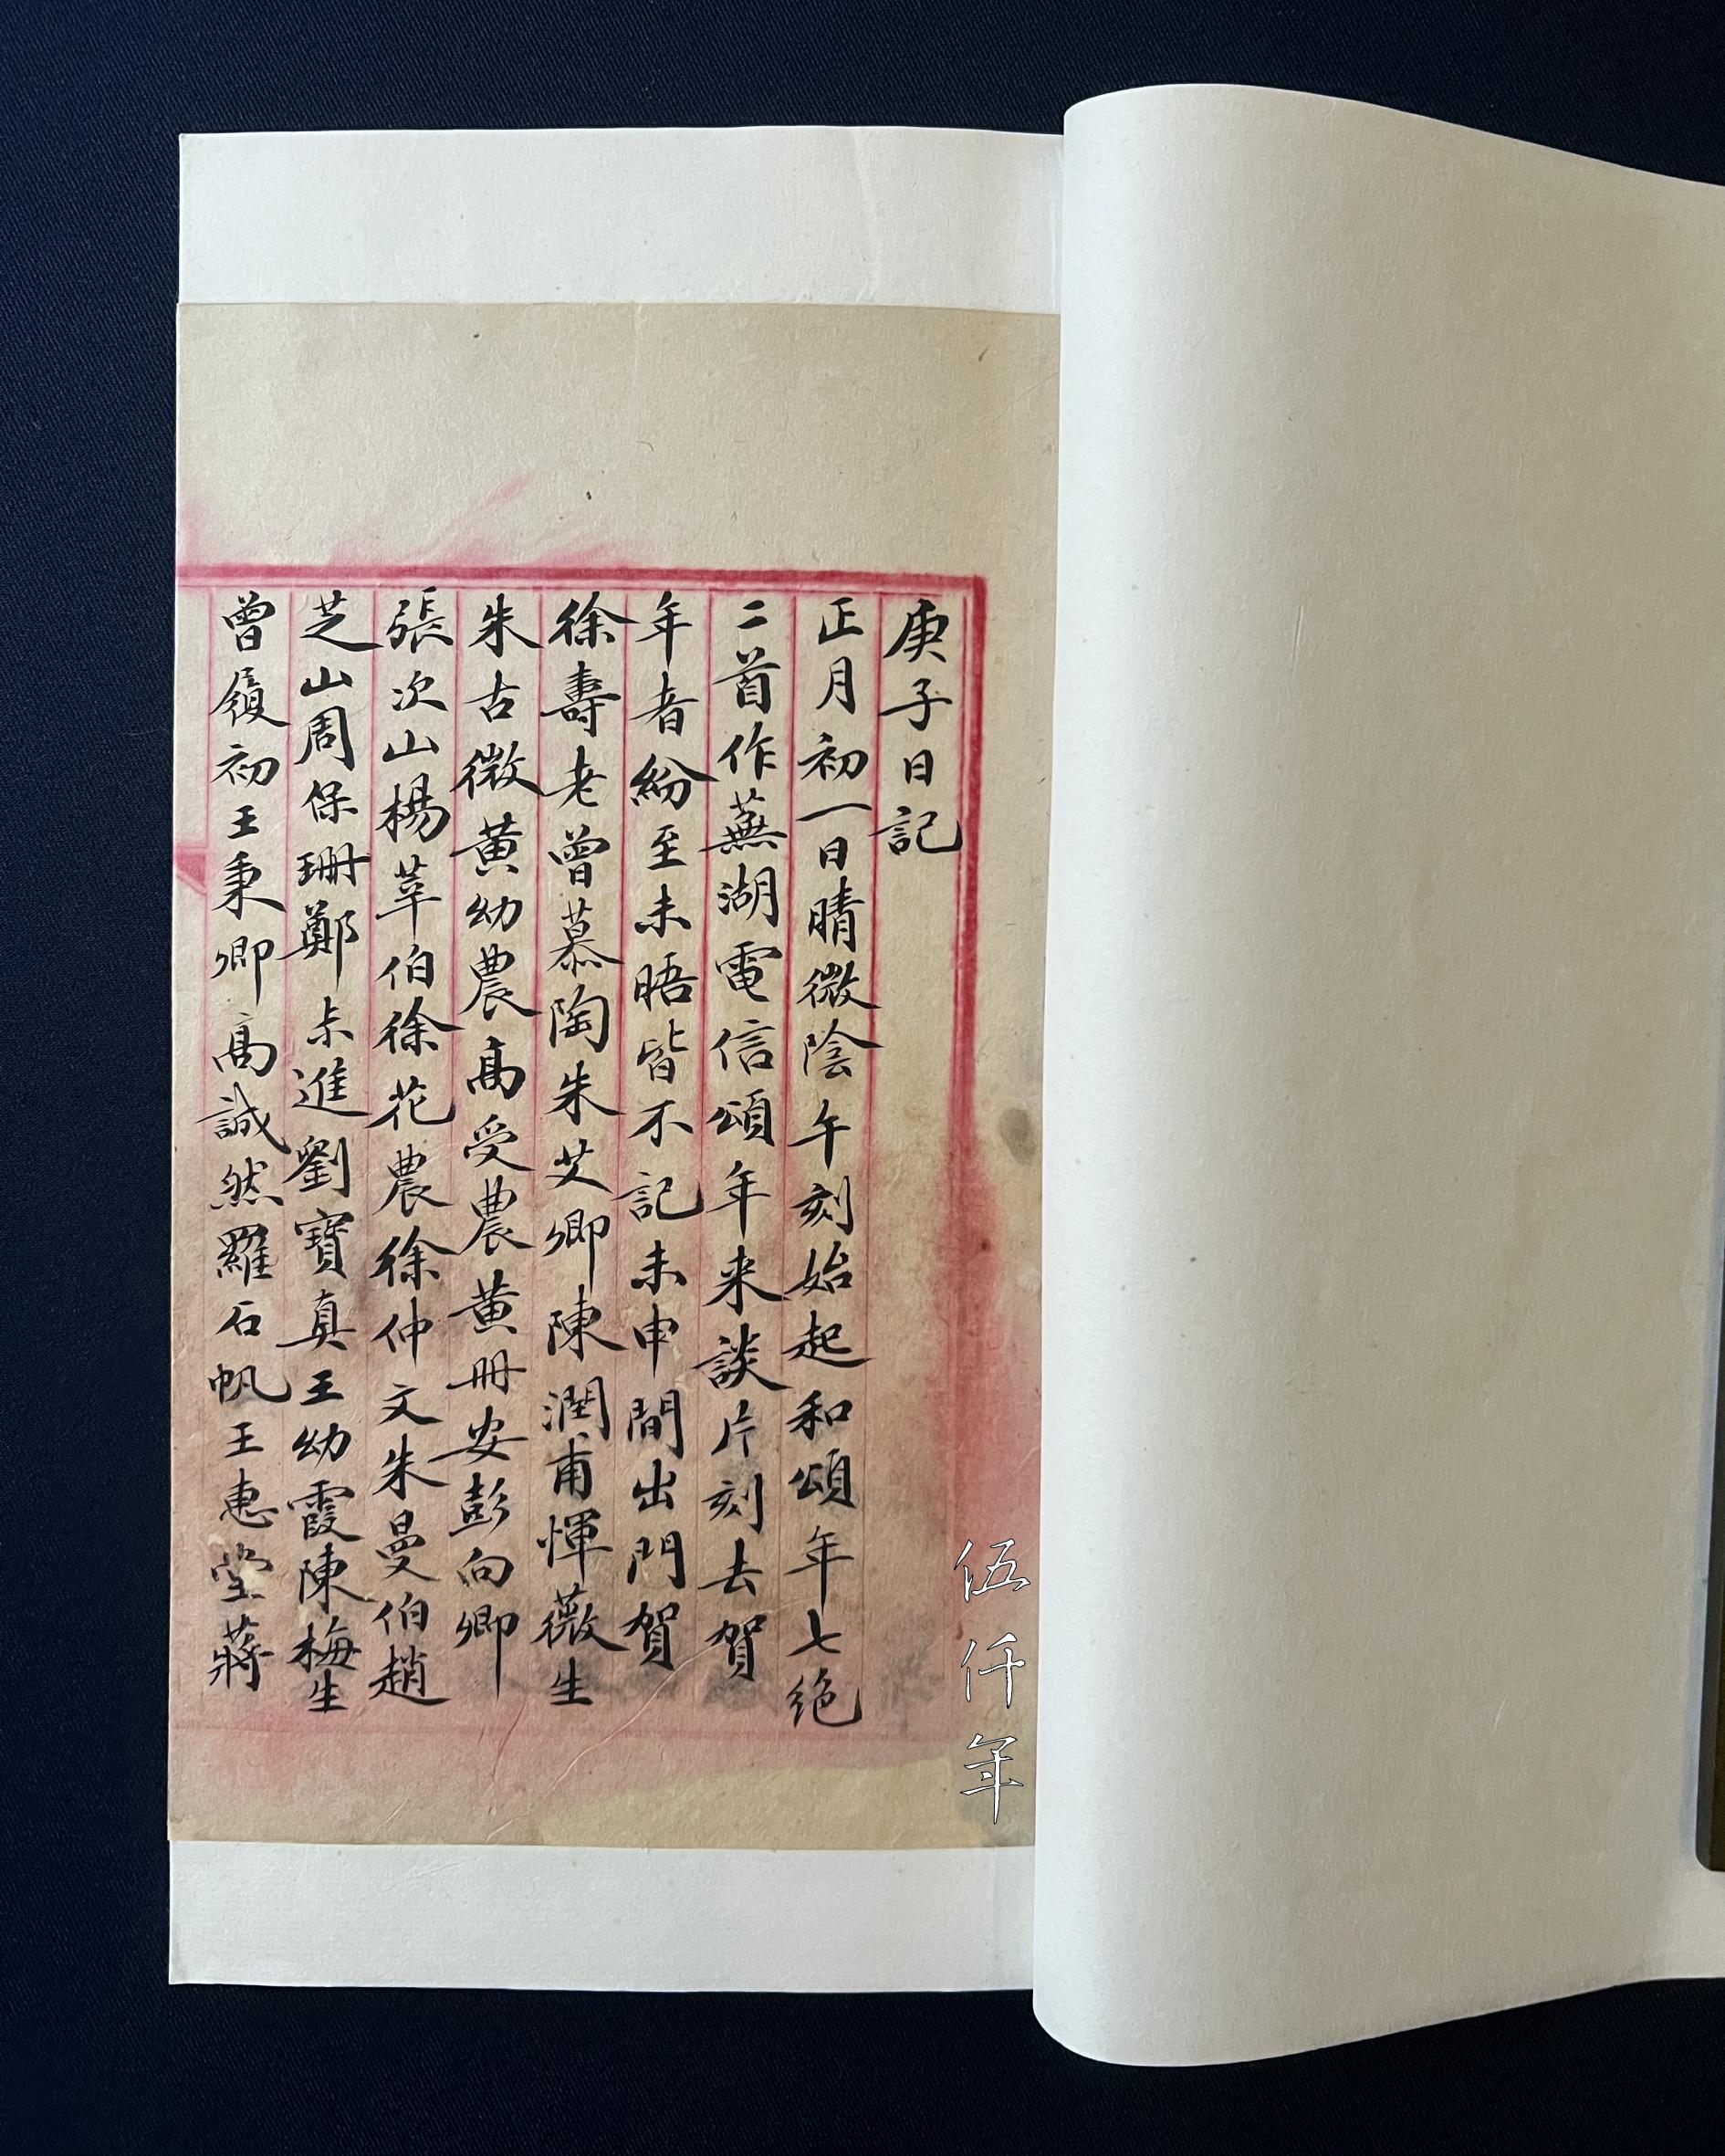 庚子日記
正月初一日晴微陰午刻始起和頌年七绝
二首作蕪湖電信頌年来談片刻去賀
年者紛至未晤皆不記未申間出門賀
徐壽老曾慕陶朱艾卿陳潤甫惲薇生
朱古微黄幼農高受農黄冊安彭向卿
張次山楊莘伯徐花農徐仲文朱曼伯趙
芝山周保珊鄭尗進劉寶真王幼霞陳梅生
曾履初王秉卿高誠然羅石帆王惠堂蔣
伍仟年